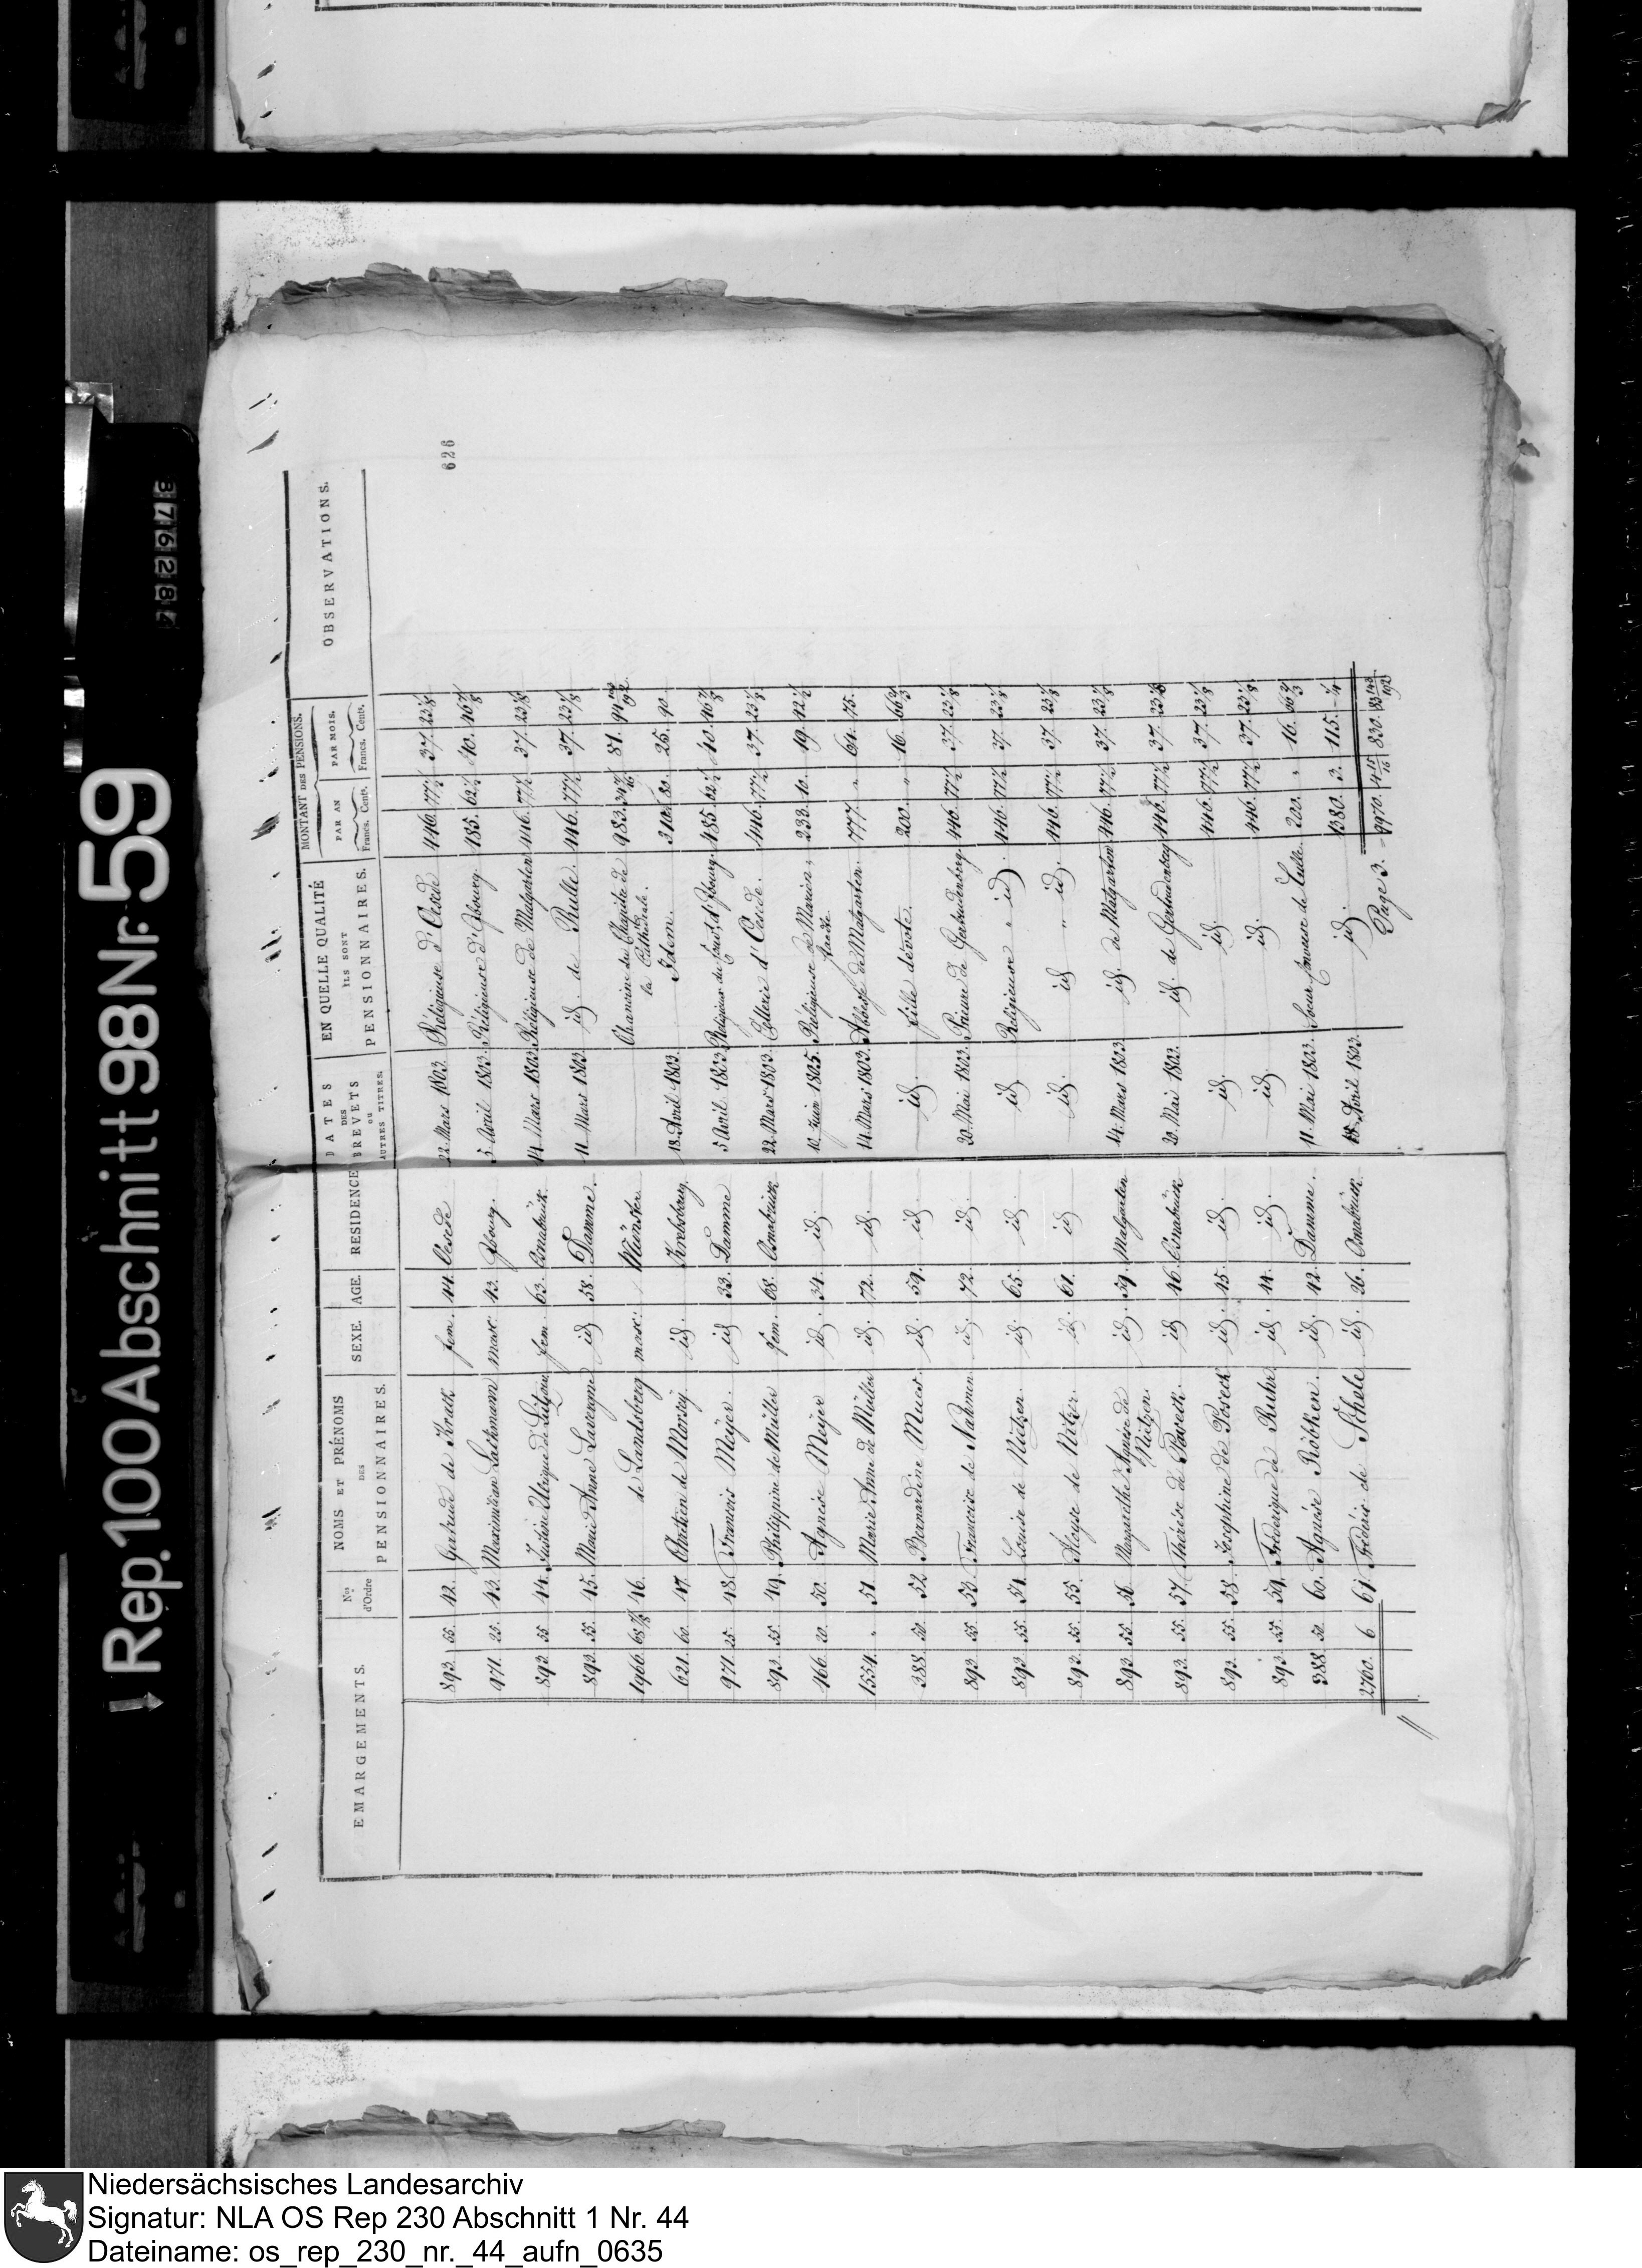 Rep. 100 A Abschnitt 98 Nr. 59
376284
626
EMARGEMENTS. Nos d'Ordre NOMS ET PRÉNOMS DES PENSIONNAIRES. SEXE. AGE. RESIDENCE DATES DES BREVETS OU AUTRES TITRES. EN QUELLE QUALITÉ ILS SONT PENSIONNAIRES. MONTANT DES PENSIONS. PAR AN Francs. Cents. PAR MOIS. Francs. Cents. OBSERVATIONS.
893. 55. 42. Gertrude de Krack fem. 44. Oesede 22. Mars 1803. Réligieuse d'Oesede 446. 77½ 37. 23⅛
971. 25. 43. Maximilian Lathmann masc. 43. Jbourg. 5. Avril 1803. Réligieux d'Jbourg. 485. 62½ 40. 46⅞
893. 55 44. fem. 63. Osnabrück. 14. Mars 1803. Réligieuse de Malgarten 446. 77½ 37. 23⅛
893. 55. 45. Marie Anne Lavergne id 58. Damme. 11. Mars 1803. id. de Rulle. 446. 77½ 37. 23⅛
1966. 68 46. de Landsberg masc. Münster Chanoine du Chapitre de la Cathédrale. 983. 81.
621. 60. 47. Christien de Morsey id. Krebsburg. 18. Avril 1803. Idem. 310. 80. 25. 90
971. 25. 48. Francois Meyer. id 33. Damme 5 Avril 1803. Religieux d'Jbourg. 485. 62½ 40. 46⅞
893. 55. 49. Philippine de Müller fem. 68. Osnabrück 22. Mars 1803. Cellerie d'Oesede. 446. 77½ 37. 23⅛
466. 20. 50. Agnése Meyer id. 34. id. 10 Juin 1805. Réligieuse de Marien, 233. 10. 19. 42½
1554. " 51. Marie Anne de Müller id. 72. id. 14. Mars 1803. Abbesse de Malgarten. 777. " 64. 75.
388. 50. 52. Bernardine Mues. id. 59. id. id. fille dévote. 200. " 16. 66⅔
893. 55. 53. Francoise de Nahmen. id. 72. id. 20. Mai 1803. Prieure de Gertrudenberg. 446. 77½ 37. 23⅛
893. 55. 54. Louise de Nietzen. id. 65. id. id Religieuse " id. 446. 77½ 37. 23⅛
893. 55. 55. Aloyse de id. 61. id id. id " id. 446. 77½ 37. 23⅛
893. 55. 56 Margarethe Agnése de Nietzen. id. 59. Malgarten 14. Mars 1803. id. de Malgarten. 446. 77½ 37. 23⅛
893. 55. 57. Thérése de id 46. Osnabrück 20. Mai 1803. id. de Gertrudenberg 446. 77½ 37. 23⅛
893. 55. 58. Josephine de id. 45. id. id. id. 446. 77½ 37. 23⅛
893. 55. 59. Fréderique de Ruhr id. 44. id. id id. 446. 77½ 37. 23⅛
388. 50. 60. Agnése Röbken. id. 42. Damme. 11. Mai 1803. Soeur de Rulle. 200. " 16. 66⅔
2760. 6 61. Fréderic de Schele id. 26. Osnabrück. 18. Avril 1803. id. 1380. 3. 115. ¼
Page 3. 830.
Niedersächsisches Landesarchiv
Signatur: NLA OS Rep 230 Abschnitt 1 Nr. 44
Dateiname: os_rep_230_nr._44_aufn_0635